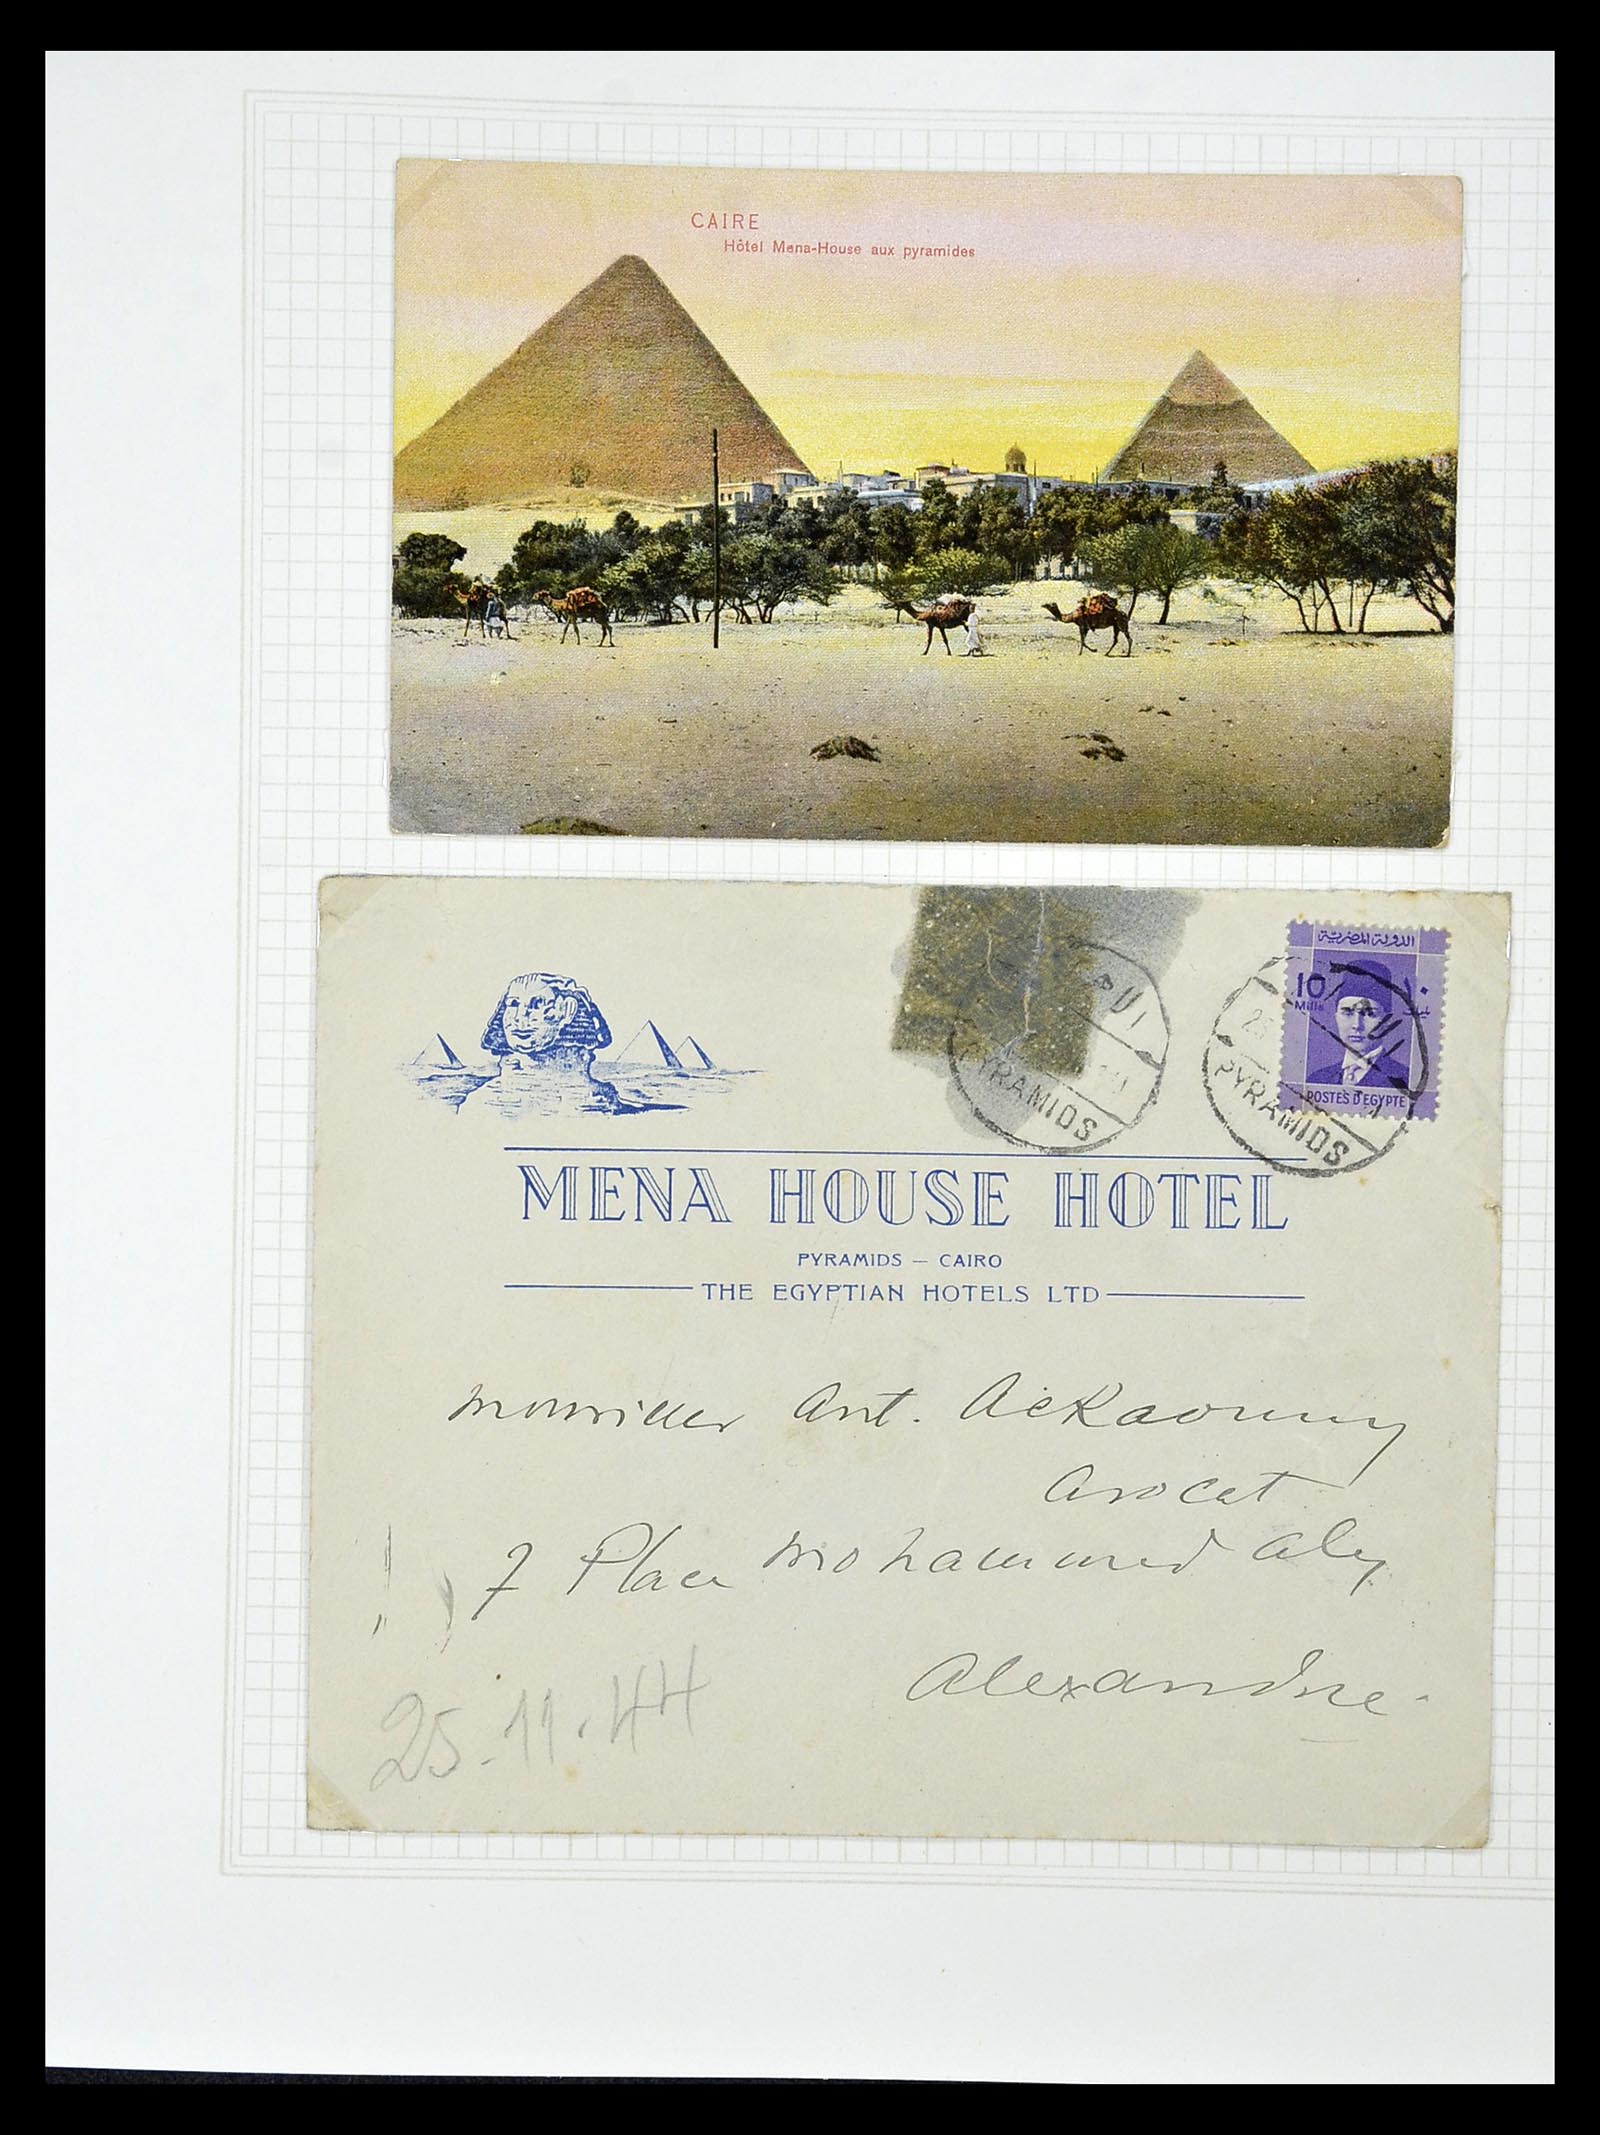 CAIRE
Hôtel Mena-House aux pyramides
الدولة المصرية
10 ١٠
Mills
POSTES D'EGYPTE
PYRAMIDS
PYRAMIDS
MENA HOUSE HOTEL
PYRAMIDS – CAIRO
THE EGYPTIAN HOTELS LTD
Ant.
Avocat
7 Place Mohammed Aly
Alexandrie
25.11.44